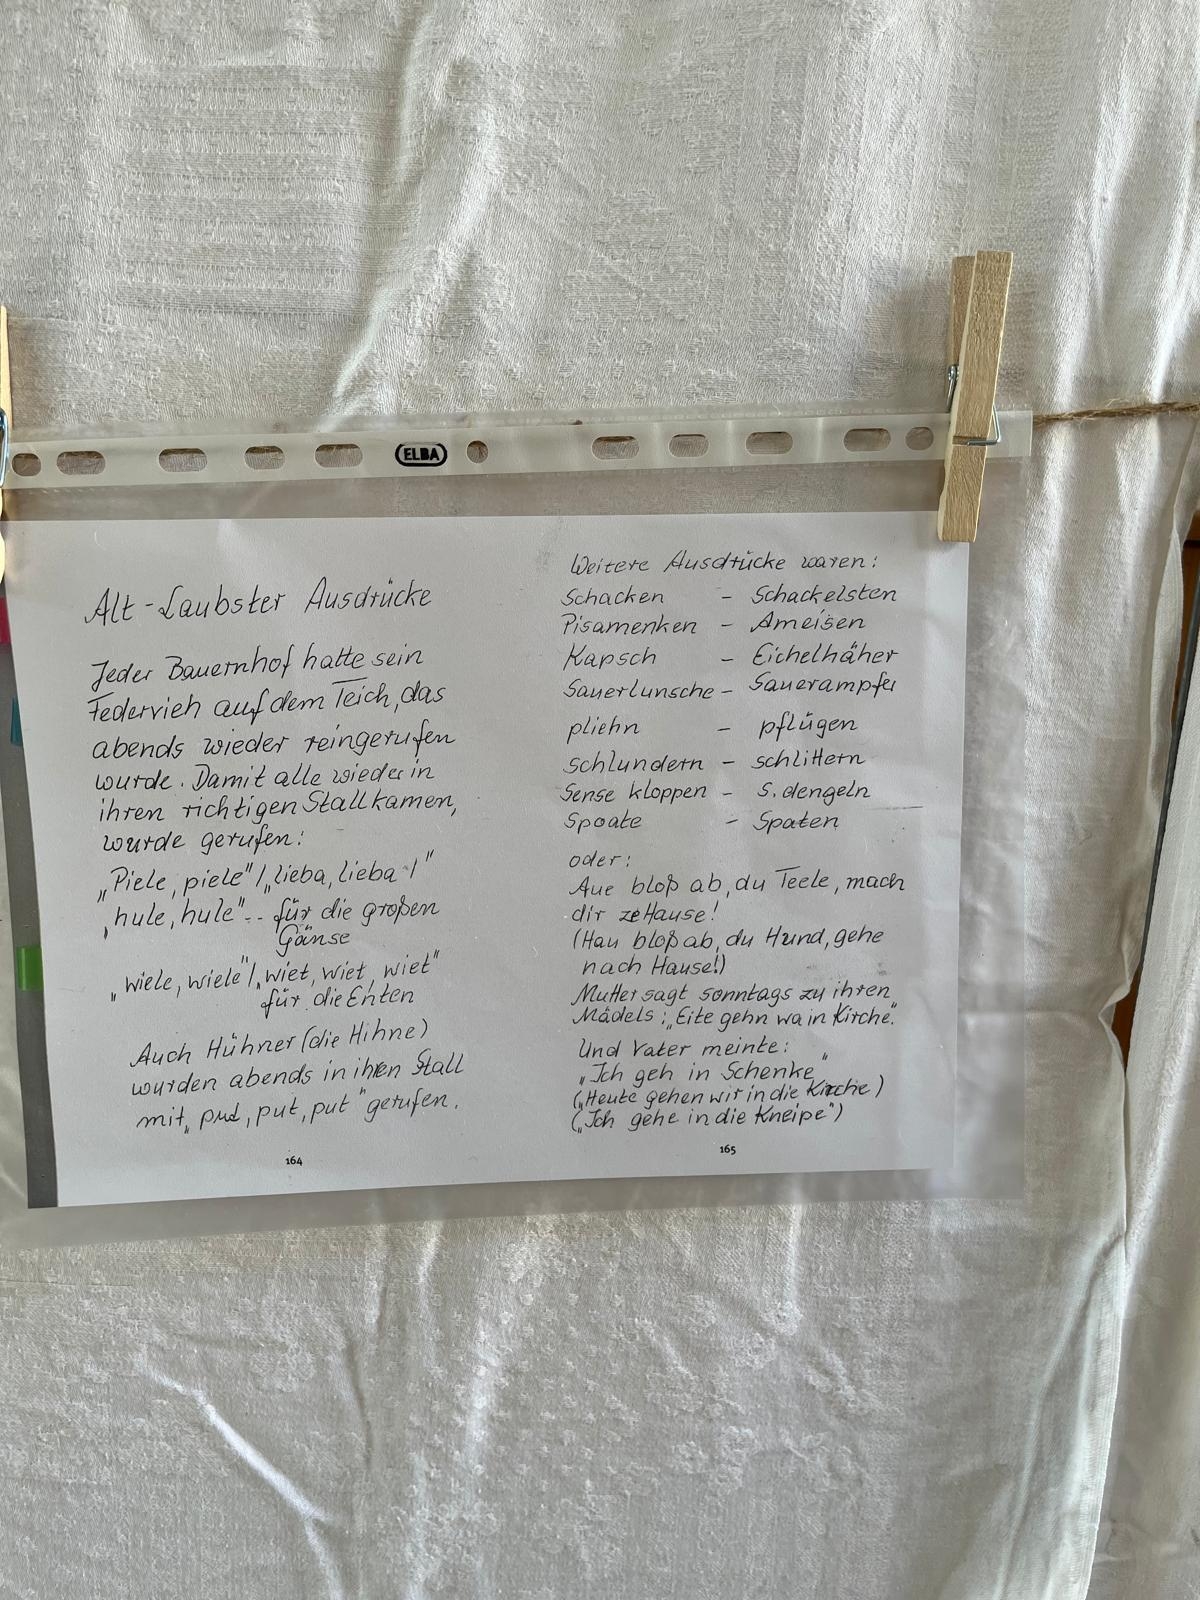 ELBA
Alt-Laubster Ausdrücke
Jeder Bauernhof hatte sein
Federvieh auf dem Teich, das
abends wieder reingerufen
wurde. Damit alle wieder in
ihren richtigen Stall kamen,
wurde gerufen:
„Piele, piele"/„lieba, lieba -/"
„hule, hule" -- für die großen
Gänse
„wiele, wiele"/„wiet, wiet, wiet"
für die Enten
Auch Hühner (die Hihne)
wurden abends in ihren Stall
mit „put, put, put" gerufen.
164
Weitere Ausdrücke waren:
Schacken - Schackelsten
Pisamenken - Ameisen
Kapsch - Eichelhäher
Sauerlunsche - Sauerampfer
pliehn - pflügen
schlundern - schlittern
Sense kloppen - S. dengeln
Spoate - Spaten
oder:
Aue bloß ab, du Teele, mach
dir ze Hause!
(Hau bloß ab, du Hund, gehe
nach Hause!)
Mutter sagt sonntags zu ihren
Mädels: „Eite gehn wa in Kirche."
Und Vater meinte:
„Ich geh in Schenke"
(„Heute gehen wir in die Kirche)
(„Ich gehe in die Kneipe")
165